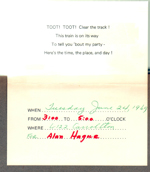 TOOT! TOOT! Clear the track!
This train is on its way
To tell you 'bout my party -
Here's the time, the place, and day!
WHEN Tuesday June 2nd,
FROM 3:00 TO 5:00 O'CLOCK
WHERE
Alan Hogue